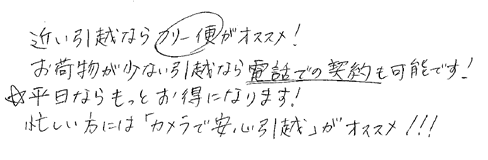 近い引越ならフリー便がオススメ!
お荷物が少ない引越なら電話での契約も可能です!
☆平日ならもっとお得になります!
忙しい方には「カメラで安心引越」がオススメ!!!